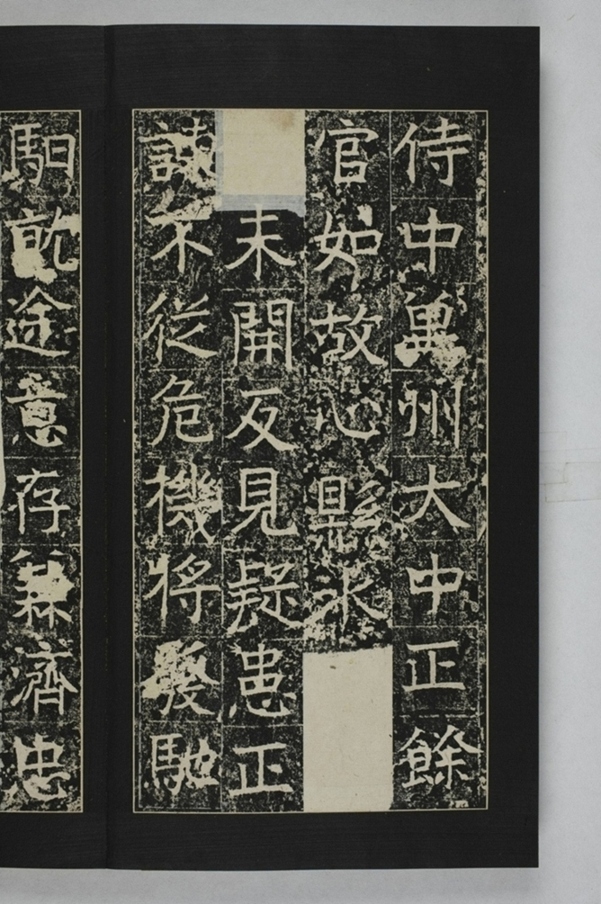 侍中冀州大中正餘
官如故心縣氷
未開反見疑患正
諫不從危機將發馳
馹就途意存兼濟忠